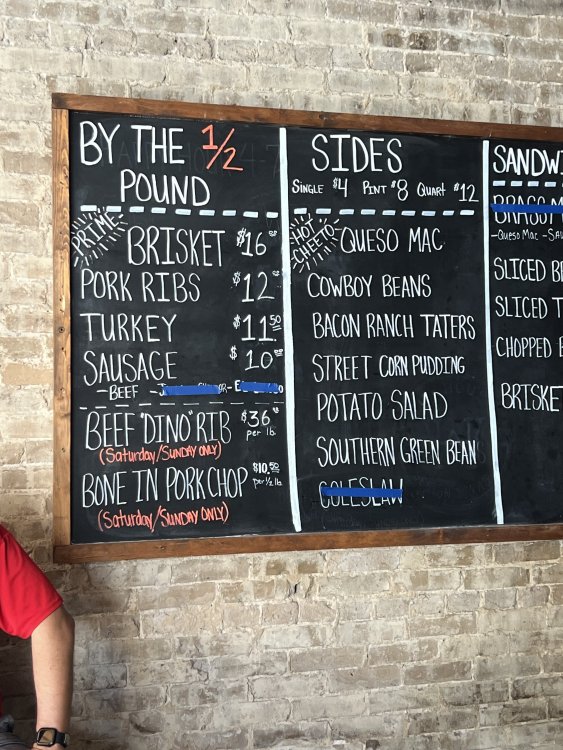 BY THE 1/2
POUND
PRIME
BRISKET $16
PORK RIBS $12
TURKEY $11.50
SAUSAGE $10
- BEFF
BEEF "DINO" RIB $36 per lb.
(Saturday/SUNDAY ONLY)
BONE IN PORK CHOP $10.50 per 1/2 lb.
(Saturday/SUNDAY ONLY)
SIDES
SINGLE $4 PINT $8 QUART $12
HOT CHEETO QUESO MAC
COWBOY BEANS
BACON RANCH TATERS
STREET CORN PUDDING
POTATO SALAD
SOUTHERN GREEN BEAN
COLESLAW
SANDWI
-QUESO MAC -SAU
SLICED B
SLICED T
CHOPPED B
BRISKET